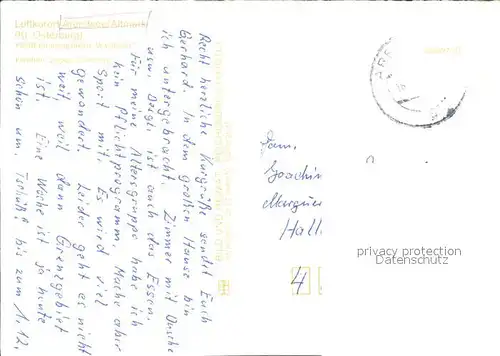 Luftkurort Arendsee/Altmark
(Kr. Osterburg)
Recht herzliche Kurgrüße sendet Euch
Gerhard. In dem großen Hause bin
ich untergebracht. Zimmer mit Dusche
usw. Desgl. ist auch das Essen.
Für meine Altersgruppe habe ich
kein Pflichtprogramm. Mache aber
Sport mit. Es wird viel
gewandert. Leider geht es nicht
weit, weil dann Grenzgebiet
ist. Eine Woche ist ja heute
schon um. Tschüß! bis zum 1.12.
Fam.
Joachim
Hall
4
privacy protection
Datenschutz